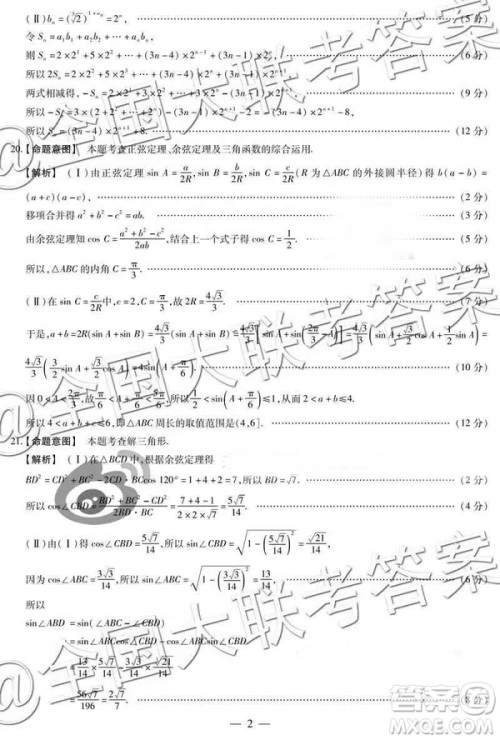 (Ⅱ) bₙ = (∛2)^(1+aₙ) = 2ⁿ, (5分)
令 Sₙ = a₁b₁ + a₂b₂ + ⋯ + aₙbₙ,
则 Sₙ = 2×2¹ + 5×2² + ⋯ + (3n−4)×2ⁿ⁻¹ + (3n−1)×2ⁿ, (7分)
所以 2Sₙ = 2×2² + 5×2³ + ⋯ + (3n−4)×2ⁿ + (3n−1)×2ⁿ⁺¹.
两式相减得, (9分)
(12分)
20.【命题意图】 本题考查正弦定理、余弦定理及三角函数的综合运用.
【解析】 (Ⅰ)由正弦定理 sin A = a/2R, sin B = b/2R, sin C = c/2R (R 为 △ABC 的外接圆半径) 得 b(a−b) =
(a+c)(a−c), (2分)
移项合并得 a²+b²−c² = ab. (3分)
由余弦定理知 cos C = (a²+b²−c²)/2ab, 结合上一个式子得 cos C = 1/2. (5分)
所以, △ABC 的内角 C = π/3. (6分)
(Ⅱ)在 sin C = c/2R 中, c=2, C = π/3, 故 2R = 4√3/3. (7分)
于是, a+b = 2R(sin A + sin B) = 4√3/3 (sin A + sin B) = 4√3/3 [sin A + sin(2π/3 − A)] = 4√3/3 (sin A + √3/2 cos A + 1/2 sin A) =
4√3/3 (3/2 sin A + √3/2 cos A) = 4sin(A + π/6). (10分)
因为 0<A<2π/3, 故 π/6<A+π/6<5π/6, 所以 1/2<sin(A+π/6)≤1.
所以 4<a+b+c≤6, 即 △ABC 周长的取值范围为 (4,6]. (12分)
21.【命题意图】 本题考查解三角形.
【解析】 (Ⅰ)在 △BCD 中, 根据余弦定理得
BD² = CD² + BC² − 2CD·BCcos 120° = 1+4+2 = 7, 所以 BD = √7. (2分)
所以 cos∠CBD = (BD²+BC²−CD²)/(2BD·BC) = (7+4−1)/(2×2×√7) = 5√7/14. (4分)
(Ⅱ)由(Ⅰ)得 cos∠CBD = 5√7/14, 所以 sin∠CBD = √(1−(5√7/14)²) = √21/14,
因为 cos∠ABC = 3√3/14, 所以 sin∠ABC = √(1−(3√3/14)²) = 13/14, (6分)
所以
sin∠ABD = sin(∠ABC − ∠CBD)
= sin∠ABCcos∠CBD − cos∠ABCsin∠CBD
= 13/14 × 5√7/14 − 3√3/14 × √21/14
= 56√7/196 = 2√7/7.
— 2 —
@全国大联考答案